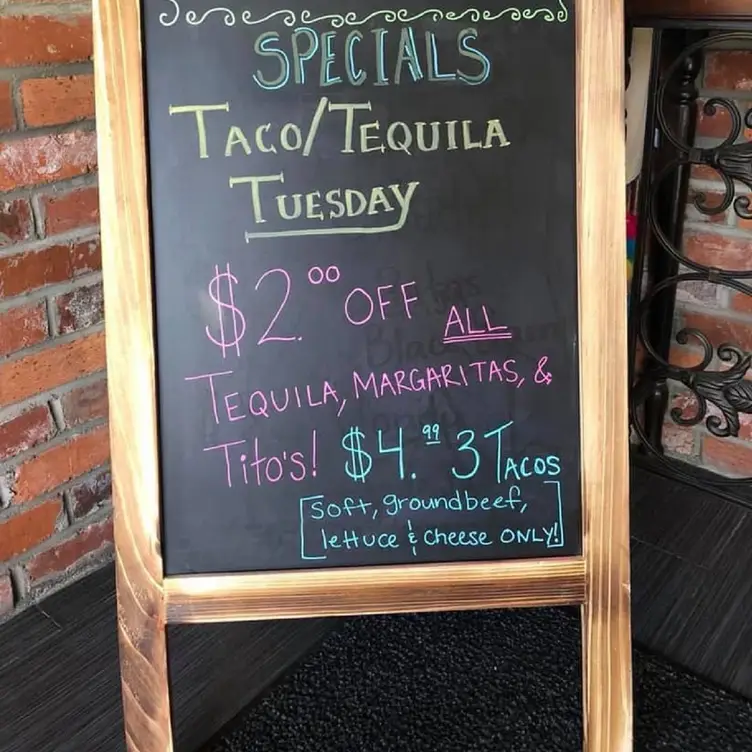 SPECIALS
TACO/TEQUILA
TUESDAY
$2.00 OFF ALL
TEQUILA, MARGARITAS, &
Tito's! $4.99 3 TACOS
[Soft, ground beef,
lettuce & cheese ONLY!]